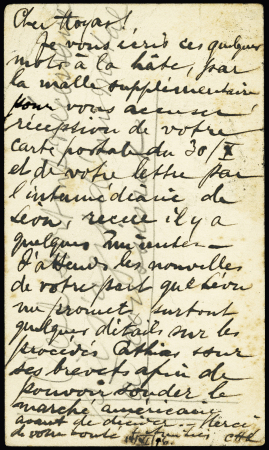 Cher Hoyas!
Je vous écris ces quelques
mots à la hâte, par
la malle supplémentaire
pour vous accuser
réception de votre
carte postale du 30/X
et de votre lettre par
l'intermédiaire de
Léon, recue il y a
quelques minutes —
J'attends les nouvelles
de votre part que Léon
me promet, surtout
quelques détails sur les
procédés Cathias sour
ses brevets afin de
pouvoir sonder le
marché américain
avant de décider — Merci
de votre bonte